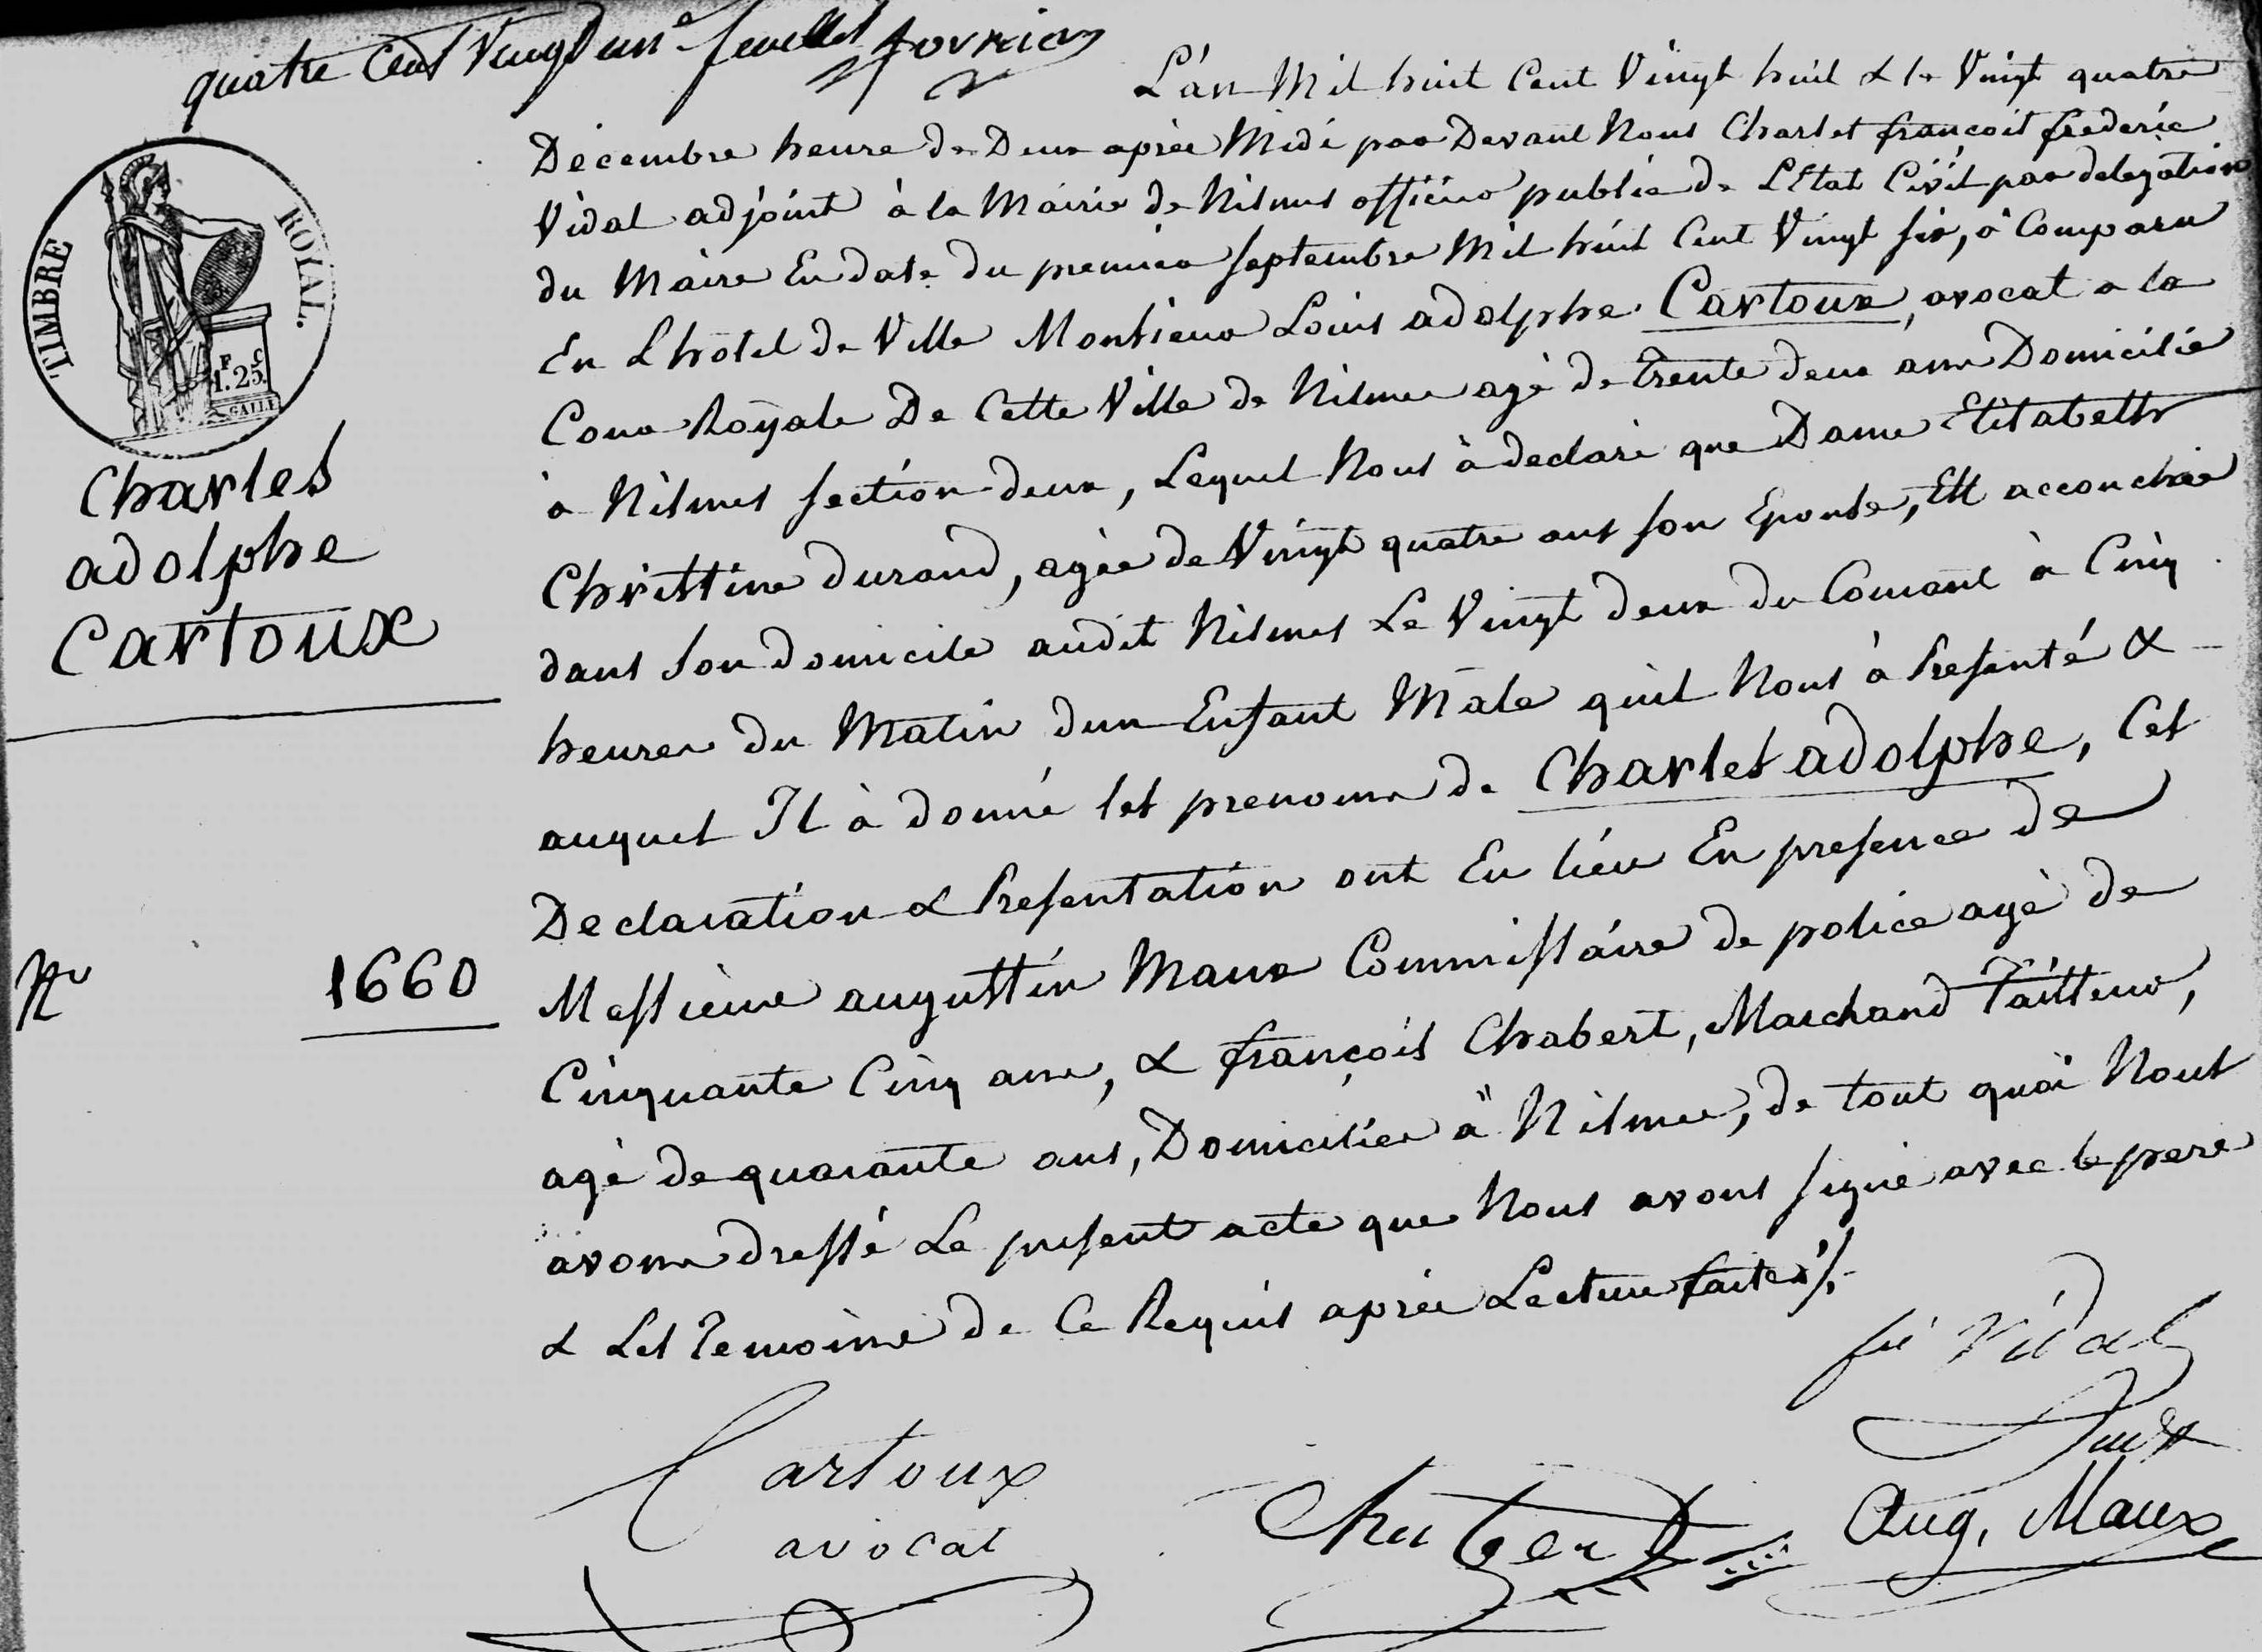 quatre Cent Vingt un.e feuillet
L'an Mil huit Cent Vingt huit & le Vingt quatre
Décembre heure de Deux après Midi par Devant Nous Charles françois frederic
Vidal adjoint à la Mairie de Nismes officier public de L'Etat Civil par delegation
du Maire En date du premier septembre Mil huit Cent Vingt six, à Comparu
En L'hôtel de Ville Monsieur Louis adolphe Cartoux, avocat a la
Cour Royale De Cette Ville de Nismes agé de trente deux ans Domicilié
à Nismes section deux, Lequel Nous à declaré que Dame Elisabeth
Christine durand, agée de Vingt quatre ans son Epouse, Est accouchée
dans son domicile audit Nismes Le Vingt deux du Courant à Cinq
heures du Matin d'un Enfant Mâle qu'il Nous à Presenté &
auquel Il à donné les prenoms de Charles adolphe, Cet
Declaration & Presentation ont Eu lieu En presence de
Messieurs augustin Maux Commissaire de police agé de
Cinquante Cinq ans, & françois Chabert, Marchand Tailleur,
agé de quarante ans, Domiciliés à Nismes, de tout quoi Nous
avons dressé Le présent acte que Nous avons signé avec le pere
& Les Temoins de Ce Requis après Lecture faite
fié Vidal
Cartoux
avocat
Chabert
Aug. Maux
TIMBRE
ROYAL.
F. C.
1.25.
GALLE
Charles
adolphe
Cartoux
N.o 1660